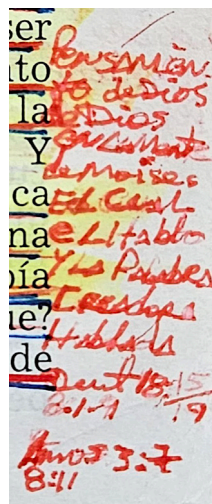 ser
to
la
Y
ca
na
bía
ue?
de
Pensamien
to de Dios
o Dios
en la mente
de Moises
El Cual
el
y la Palabra
Creadora
Hablada
Deut 18:15
19
8:1-9
Amos 3:7
8:11